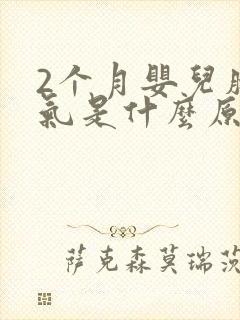 2个月嬰兒
氣是什麼原
萨克森莫瑞茨